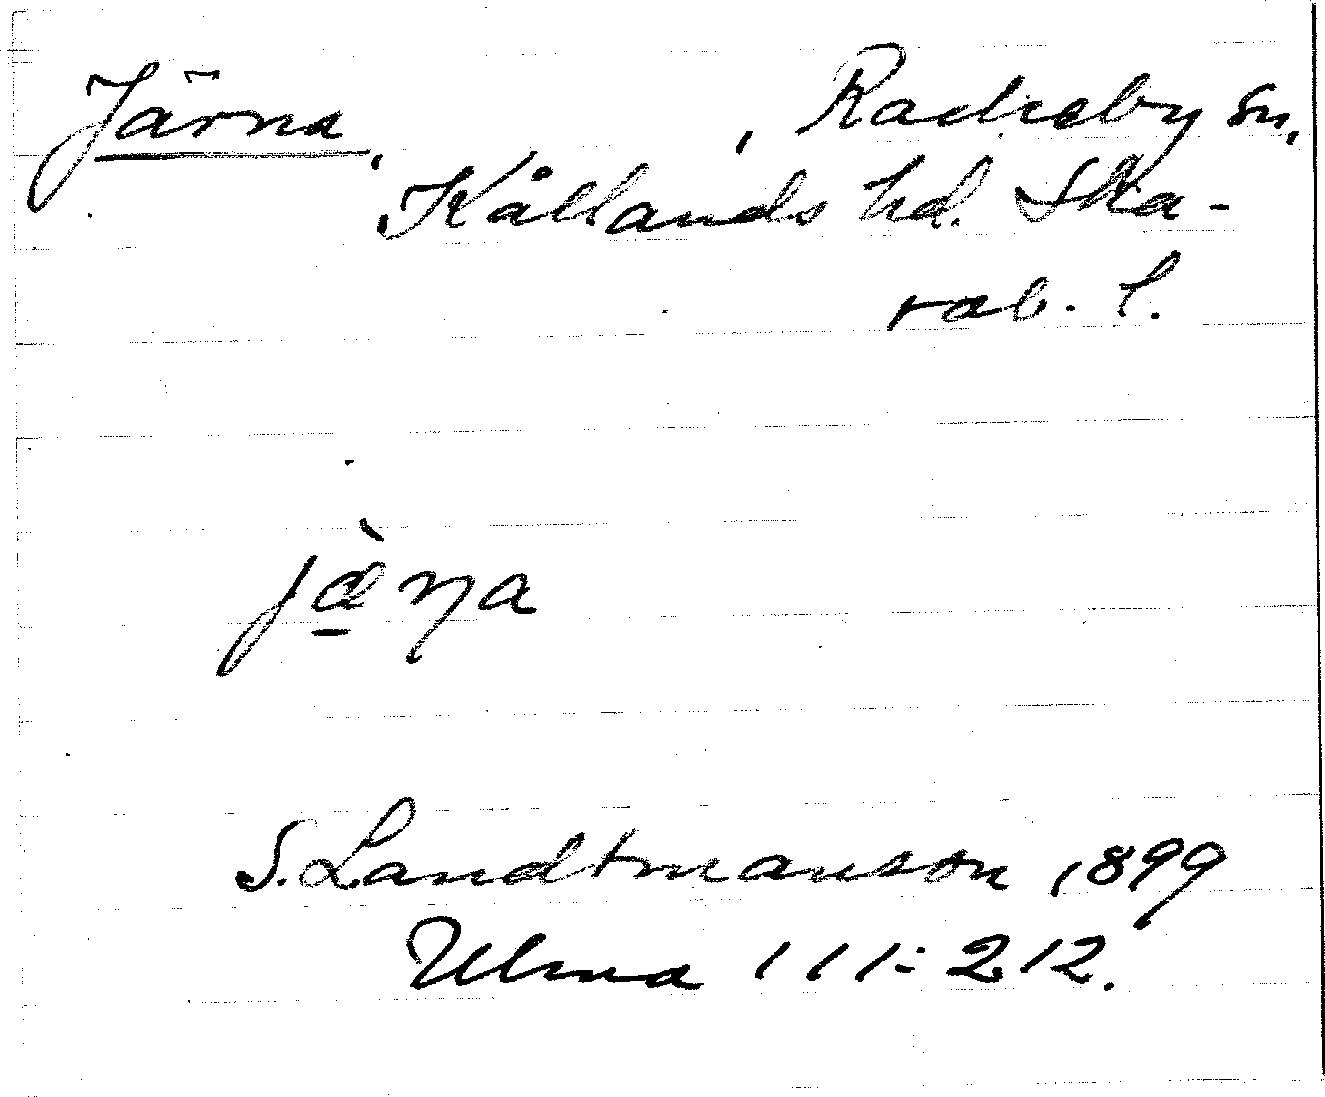 Järna, , Rackeby sn,
Kållands hd. Ska-
rab. l.
jæ̠̀ɳa
S. Landtmanson 1899
Ulma 111:212.